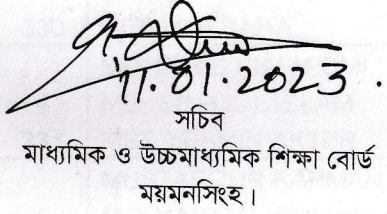 11.01.2023.
সচিব
মাধ্যমিক ও উচ্চমাধ্যমিক শিক্ষা বোর্ড
ময়মনসিংহ।